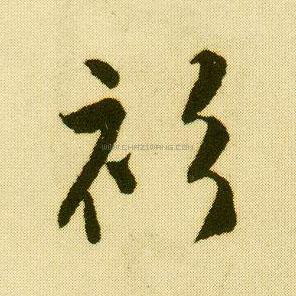 衫
WWW.CHAZIWANG.COM